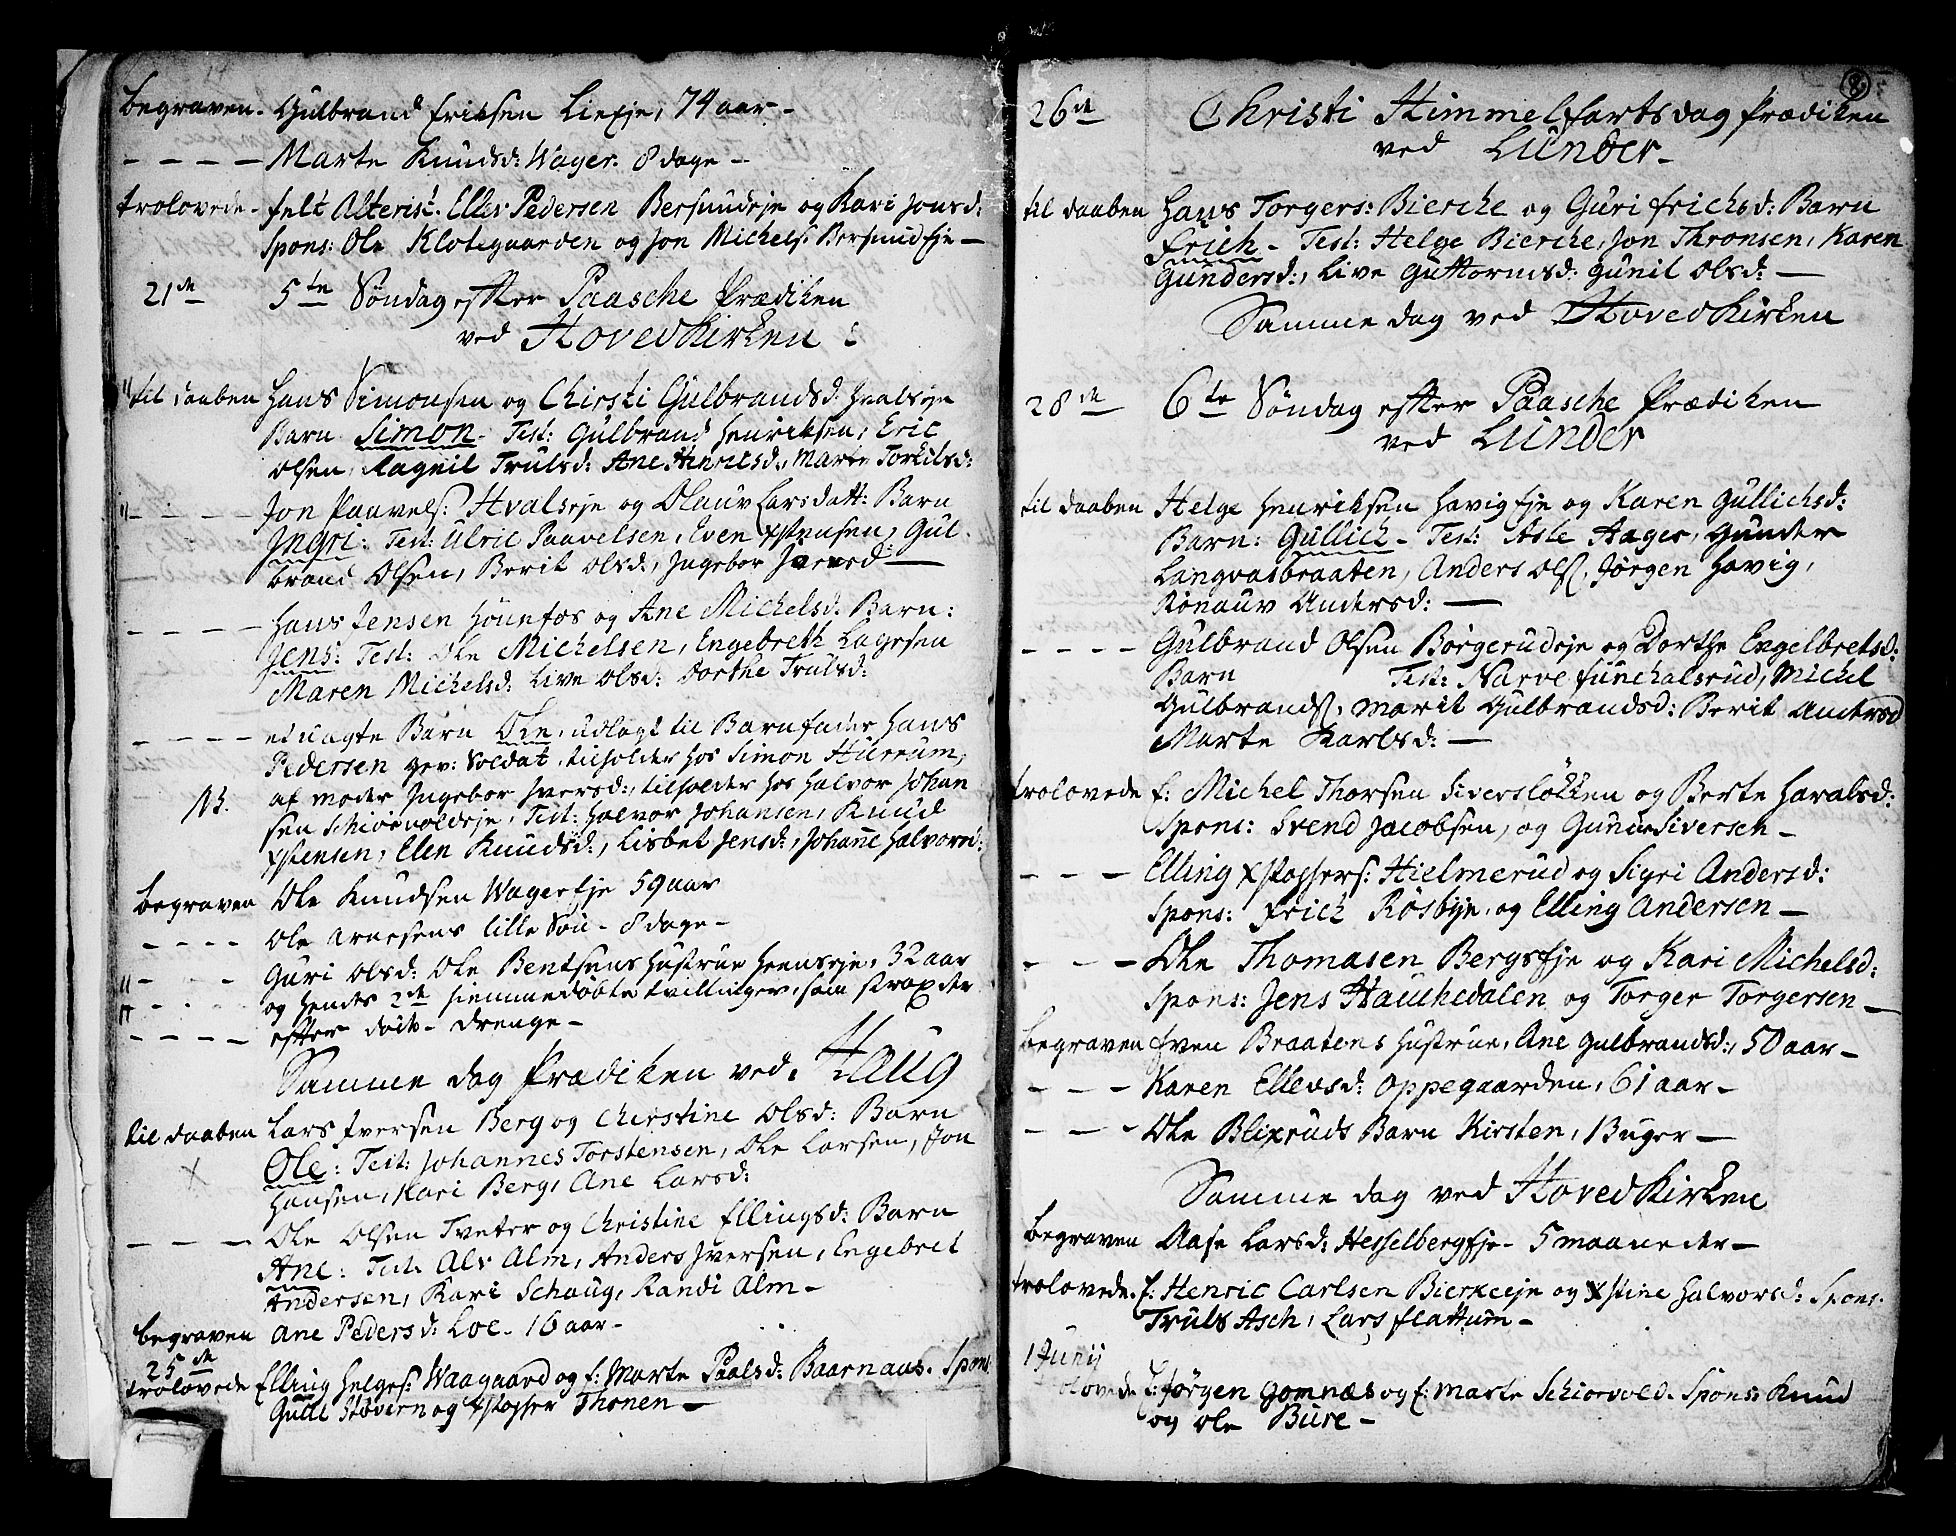 begraven. Gulbrand Eriksen Lieeje, 74 aar -
- - - - Marte Knudsd: Wager. 8 dage -
trolovede - Ellev Pedersen Bersundeje og Kari Jonsd:
Spons: Ole Klotsgaarden og Jon Michels. Bersundeje -
21de 5te Søndag efter Paasche Prædiken
ved Hoved Kirken
til daaben Hans Simonsen og Chirsti Gulbrandsd: Hvalseje
Barn Simon - Test: Gulbrand Henriksen, Eric
Olsen, Ragnil Trulsd: Ane Henricsd:, Marte Torkilsd:
- - - - Jon Paavels: Hvalseje og Olauv Larsdatt: Barn
Ingri: Test: Ulric Paavelsen, Even Xstensen, Gul-
brand Olsen, Berit Olsd:, Ingebor Iversd: -
- - - - Hans Jensen Hønnefos og Ane Michelsd: Barn:
Jens: Test: Ole Michelsen, Engebreth Lagesen
Maren Michelsd: Live Olsd: Dorthe Trulsd:
- - - - et uægte Barn Ole, udlagt til Barnfader Hans
Pedersen gev: Soldat, tilholder hos Simon Hurrum,
NB. af moder Ingebor Iversd:, tilholder hos Halvor Johan
sen Schiørvoldeje, Test: Halvor Johansen, Knud
Xstensen, Elen Knudsd:, Lisbet Jensd:, Johanne Halvorsd:
begraven Ole Knudsen Wagereje 59 aar
- - - - Ole Arnesens lille Søn - 8 dage -
- - - Guri Olsd: Ole Bentsens Hustrue Heenseje, 32 aar
- - - og hendes 2de hiemmedøbte tvillinger, som strax der
- - - - efter døde - drenge -
Samme dag Prædiken ved Haug
til daaben Lars Iversen Berg og Cherstine Olsd: Barn
X Ole: Test: Johannes Torstensen, Ole Larsen, Jon
Hansen, Kari Berg, Ane Larsd:
- - - Ole Olsen Tveter og Christine Ellingsd: Barn
Ane: Test: Alv Alm, Anders Iversen, Engebret
Andersen, Kari Schaug, Randi Alm -
begraven Ane Pedersd: Loe - 16 aar -
25de
trolovede Elling Helges: Waagaard og f: Marte Paalsd: Spons
Støvern og Xstopher Thonen -
8
26de Christi Himmelfarts dag Prædiken
ved Lunder -
til daaben Hans Torgers: Bierche og Guri Erichsd: Barn
Erich - Test: Helge Bierche, Jon Thronsen, Karen
Gundersd:, Live Guttormsd: Gunil Olsd: -
Samme dag ved Hoved Kirken
28de 6te Søndag efter Paasche Prædiken
ved Lunder
til daaben Helge Henriksen Havigeje og Karen Gullichsd:
Barn: Gullich - Test: Asle Hager, Gunder
Langvasbraaten, Anders Ols., Jørgen Havig,
Rønauv Andersd: -
- - - - Gulbrand Olsen Børgerudeje og Dorthe Engelbretsd:
Barn Test: Narve Funchalsrud, Michel
Gulbrands., Marit Gulbrandsd: Berit Andersd
Marte Karlsd: -
trolovede f: Michel Thorsen Siversløkken og Berte Haralsd:
Spons: Svend Jacobsen, og Siversen -
- - - Elling Xstophers: Hielmerud og Sigri Andersd:
Spons: Erich Røsbyje, og Elling Andersen -
- - - Ole Thomasen Bergseje og Kari Michelsd:
Spons: Jens Hauchedalen og Torger Torgersen -
begraven Even Braatens Hustrue, Ane Gulbrandsd:, 50 aar -
- - - Karen Ellevsd: Oppegaarden, 61 aar -
- - - Ole Blixruds Barn Kirsten, 1 Buger -
Samme dag ved Hoved Kirken
begraven Aase Larsd: Hesselbergeje - 5 maaneder -
trolovede. f: Henric Carlsen Bierkeeje og Xstine Halvorsd: Spons.
Truls Asch, Lars Flattum -
1 Junij
trolovede f: Jørgen Gomnæs og f: Marte Schiørvold. Spons: Knud
og Ole Bure -